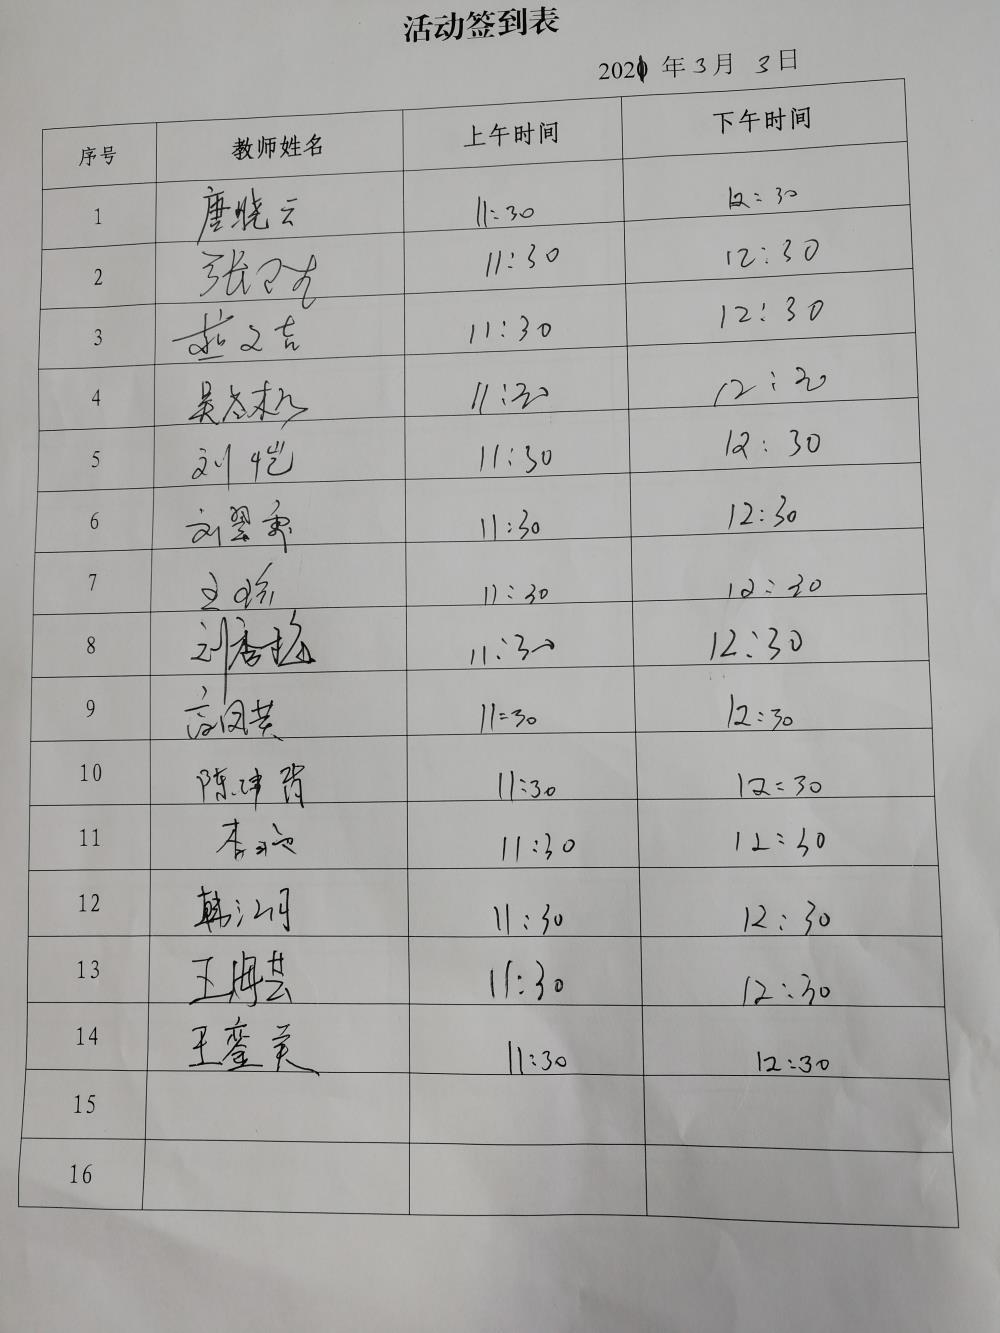 活动签到表
2021年3月3日
序号 教师姓名 上午时间 下午时间
1 唐晓云 11:30 12:30
2 张 11:30 12:30
3 赵文吉 11:30 12:30
4 吴 11:30 12:30
5 刘恺 11:30 12:30
6 刘翠 11:30 12:30
7 王 11:30 12:30
8 刘唐 11:30 12:30
9 高凤英 11:30 12:30
10 陈坤 11:30 12:30
11 李 11:30 12:30
12 韩江明 11:30 12:30
13 王海芸 11:30 12:30
14 王銮英 11:30 12:30
15
16